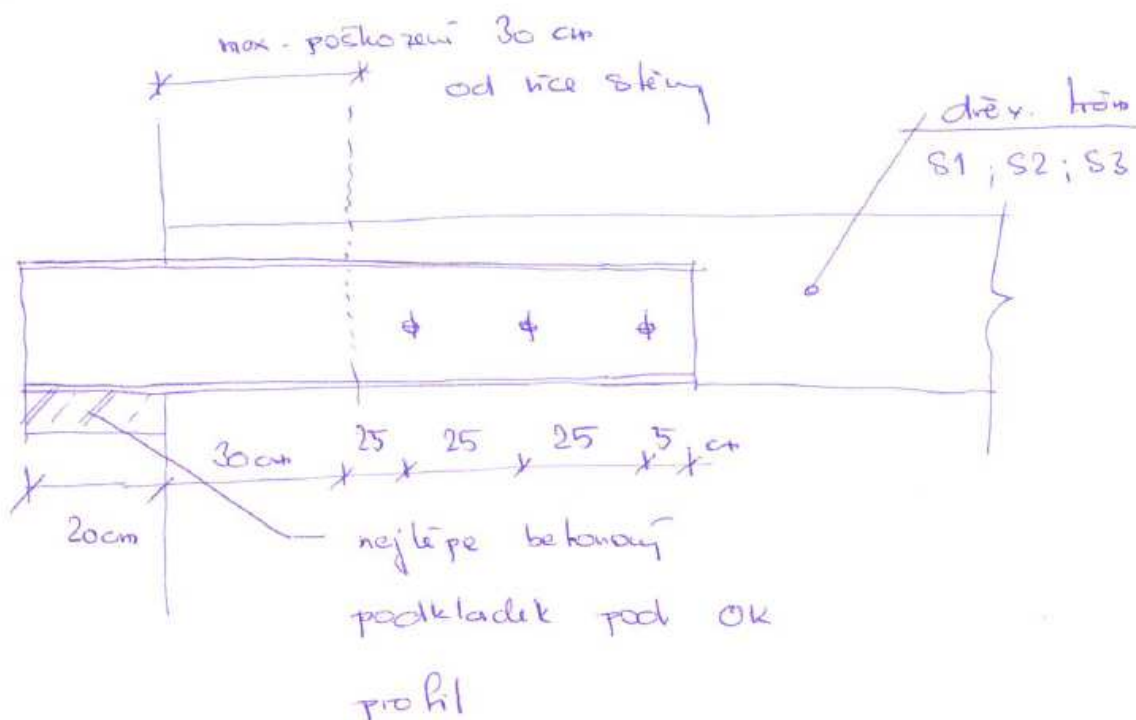 max. poškození 30 cm
od líce stěny
dřev. trám
S1 ; S2 ; S3
30cm
25
25
25
5
cm
20cm
nejlépe betonový
podkladek pod OK
profil